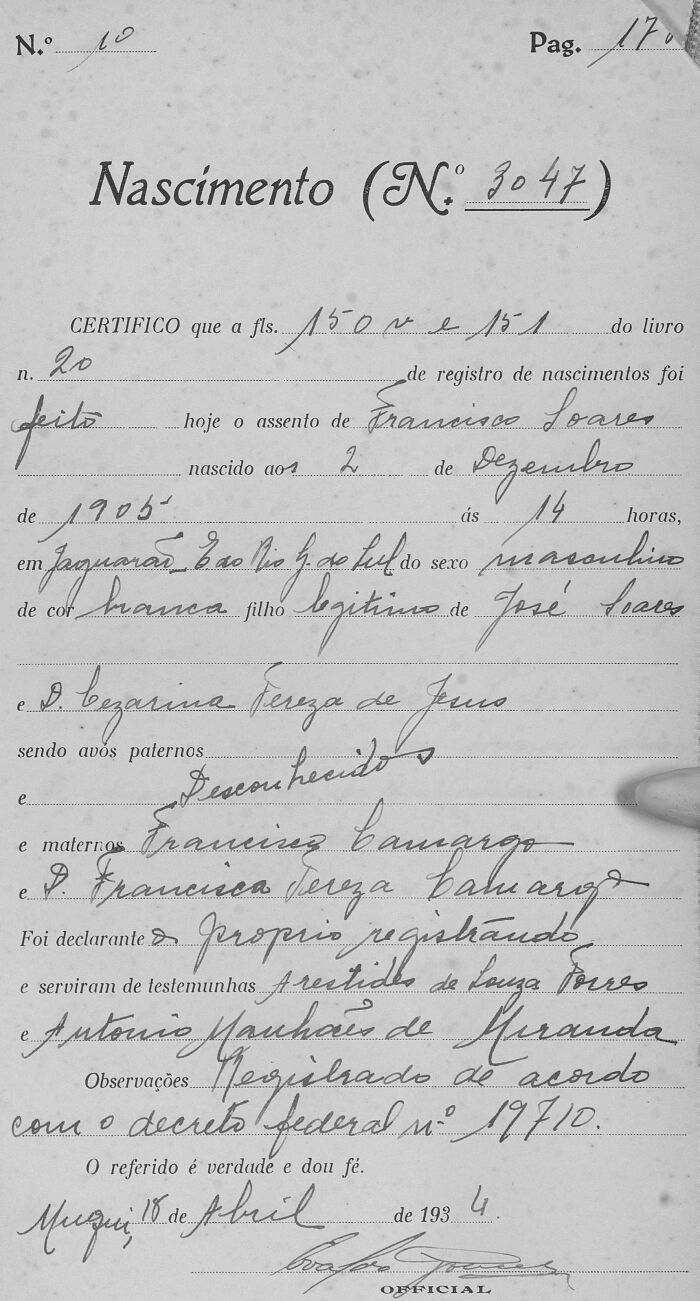 N.º 10 Pag. 170
Nascimento (N.º 3047)
CERTIFICO que a fls. 150 v e 151 do livro
n. 20 de registro de nascimentos foi
feito hoje o assento de Francisco Soares
nascido aos 2 de Dezembro
de 1905 ás 14 horas,
em Jaguarão E do Rio G. do Sul do sexo masculino
de cor branca filho legitimo de José Soares
e D. Cezarina Tereza de Jesus
sendo avós paternos
e Desconhecidos
e maternos Francisco Camargo
e D. Francisca Tereza Camargo
Foi declarante o proprio registrando
e serviram de testemunhas Arestides de Souza Torres
e Antonio Manhães de Miranda
Observações Registrado de acordo
com o decreto federal nº 19710.
O referido é verdade e dou fé.
Muqui, 18 de Abril de 1934.
OFFICIAL